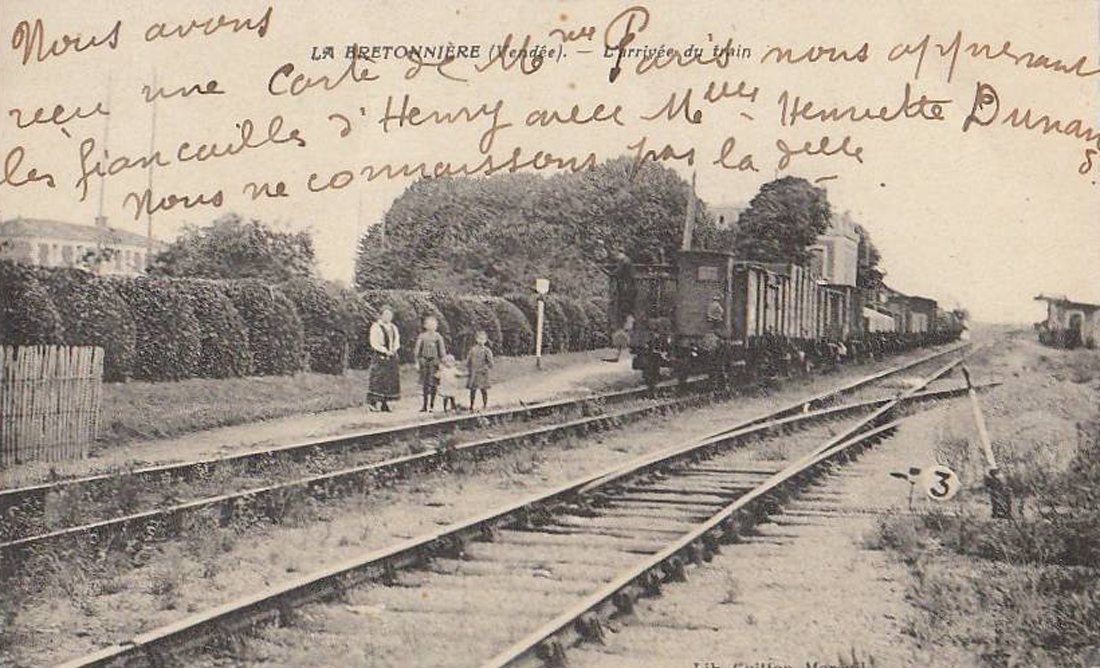 Nous avons
LA BRETONNIÈRE (Vendée). — L'arrivée du train
reçu une Carte de Mme Paris nous apprenant
les fiancailles d'Henry avec Melle Henriette Dunan
Nous ne connaissons pas la
3
Lib. Guitton